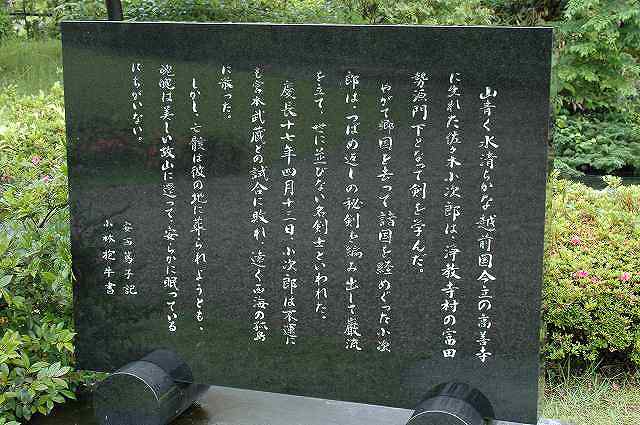 山青く水清らかな越前国今立の高善寺
に生れた佐々木小次郎は、浄教寺村の富田
勢源門下となって剣を学んだ。
やがて郷国を去って諸国を経めぐった小次
郎は、つばめ返しの秘剣を編み出して巌流
を立て、世に並びない名剣士といわれた。
慶長十七年四月十三日、小次郎は不運に
も宮本武蔵との試合に敗れ、遠く西海の孤島
に散った。
しかし、亡骸は彼の地に葬られようとも、
魂魄は美しい故山に還って、安らかに眠っている
にちがいない。
安西篤子記
小林抱牛書